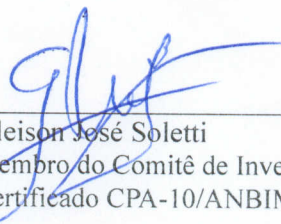 leison José Soletti
embro do Comitê de Inve
ertificado CPA-10/ANBIM